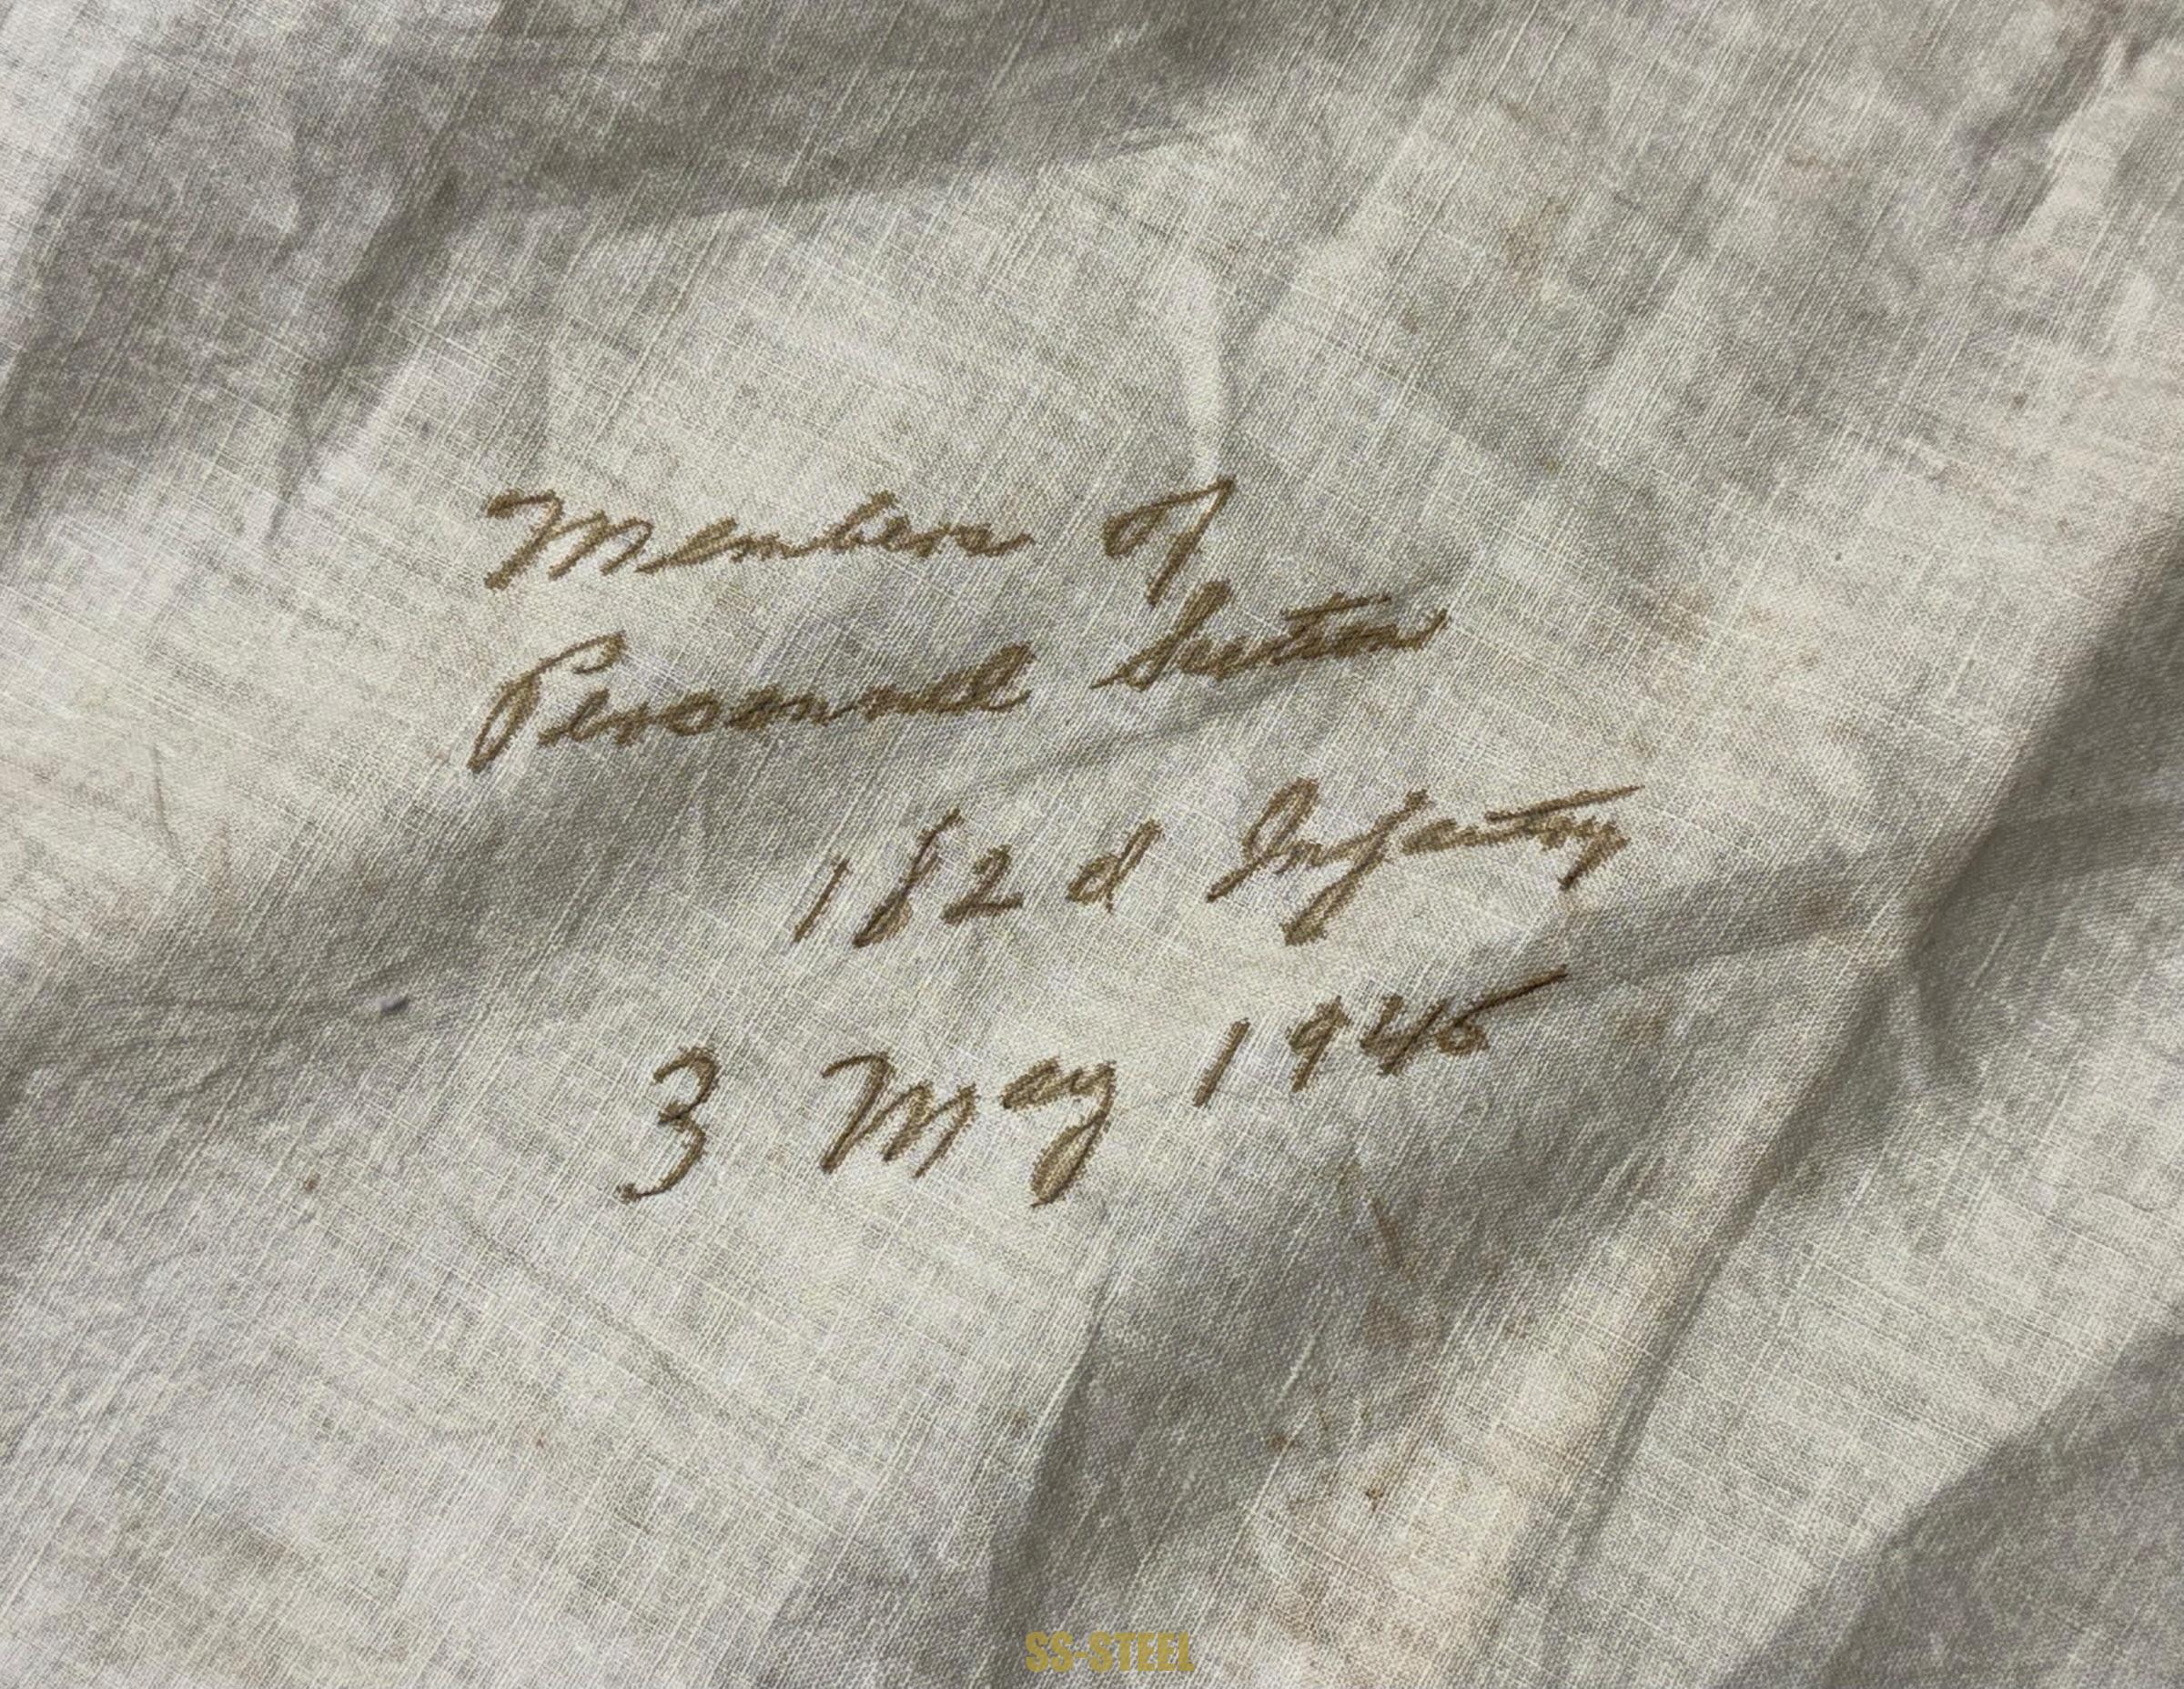 Members of
Personnel Section
182d Infantry
3 May 1945
SS-STEEL